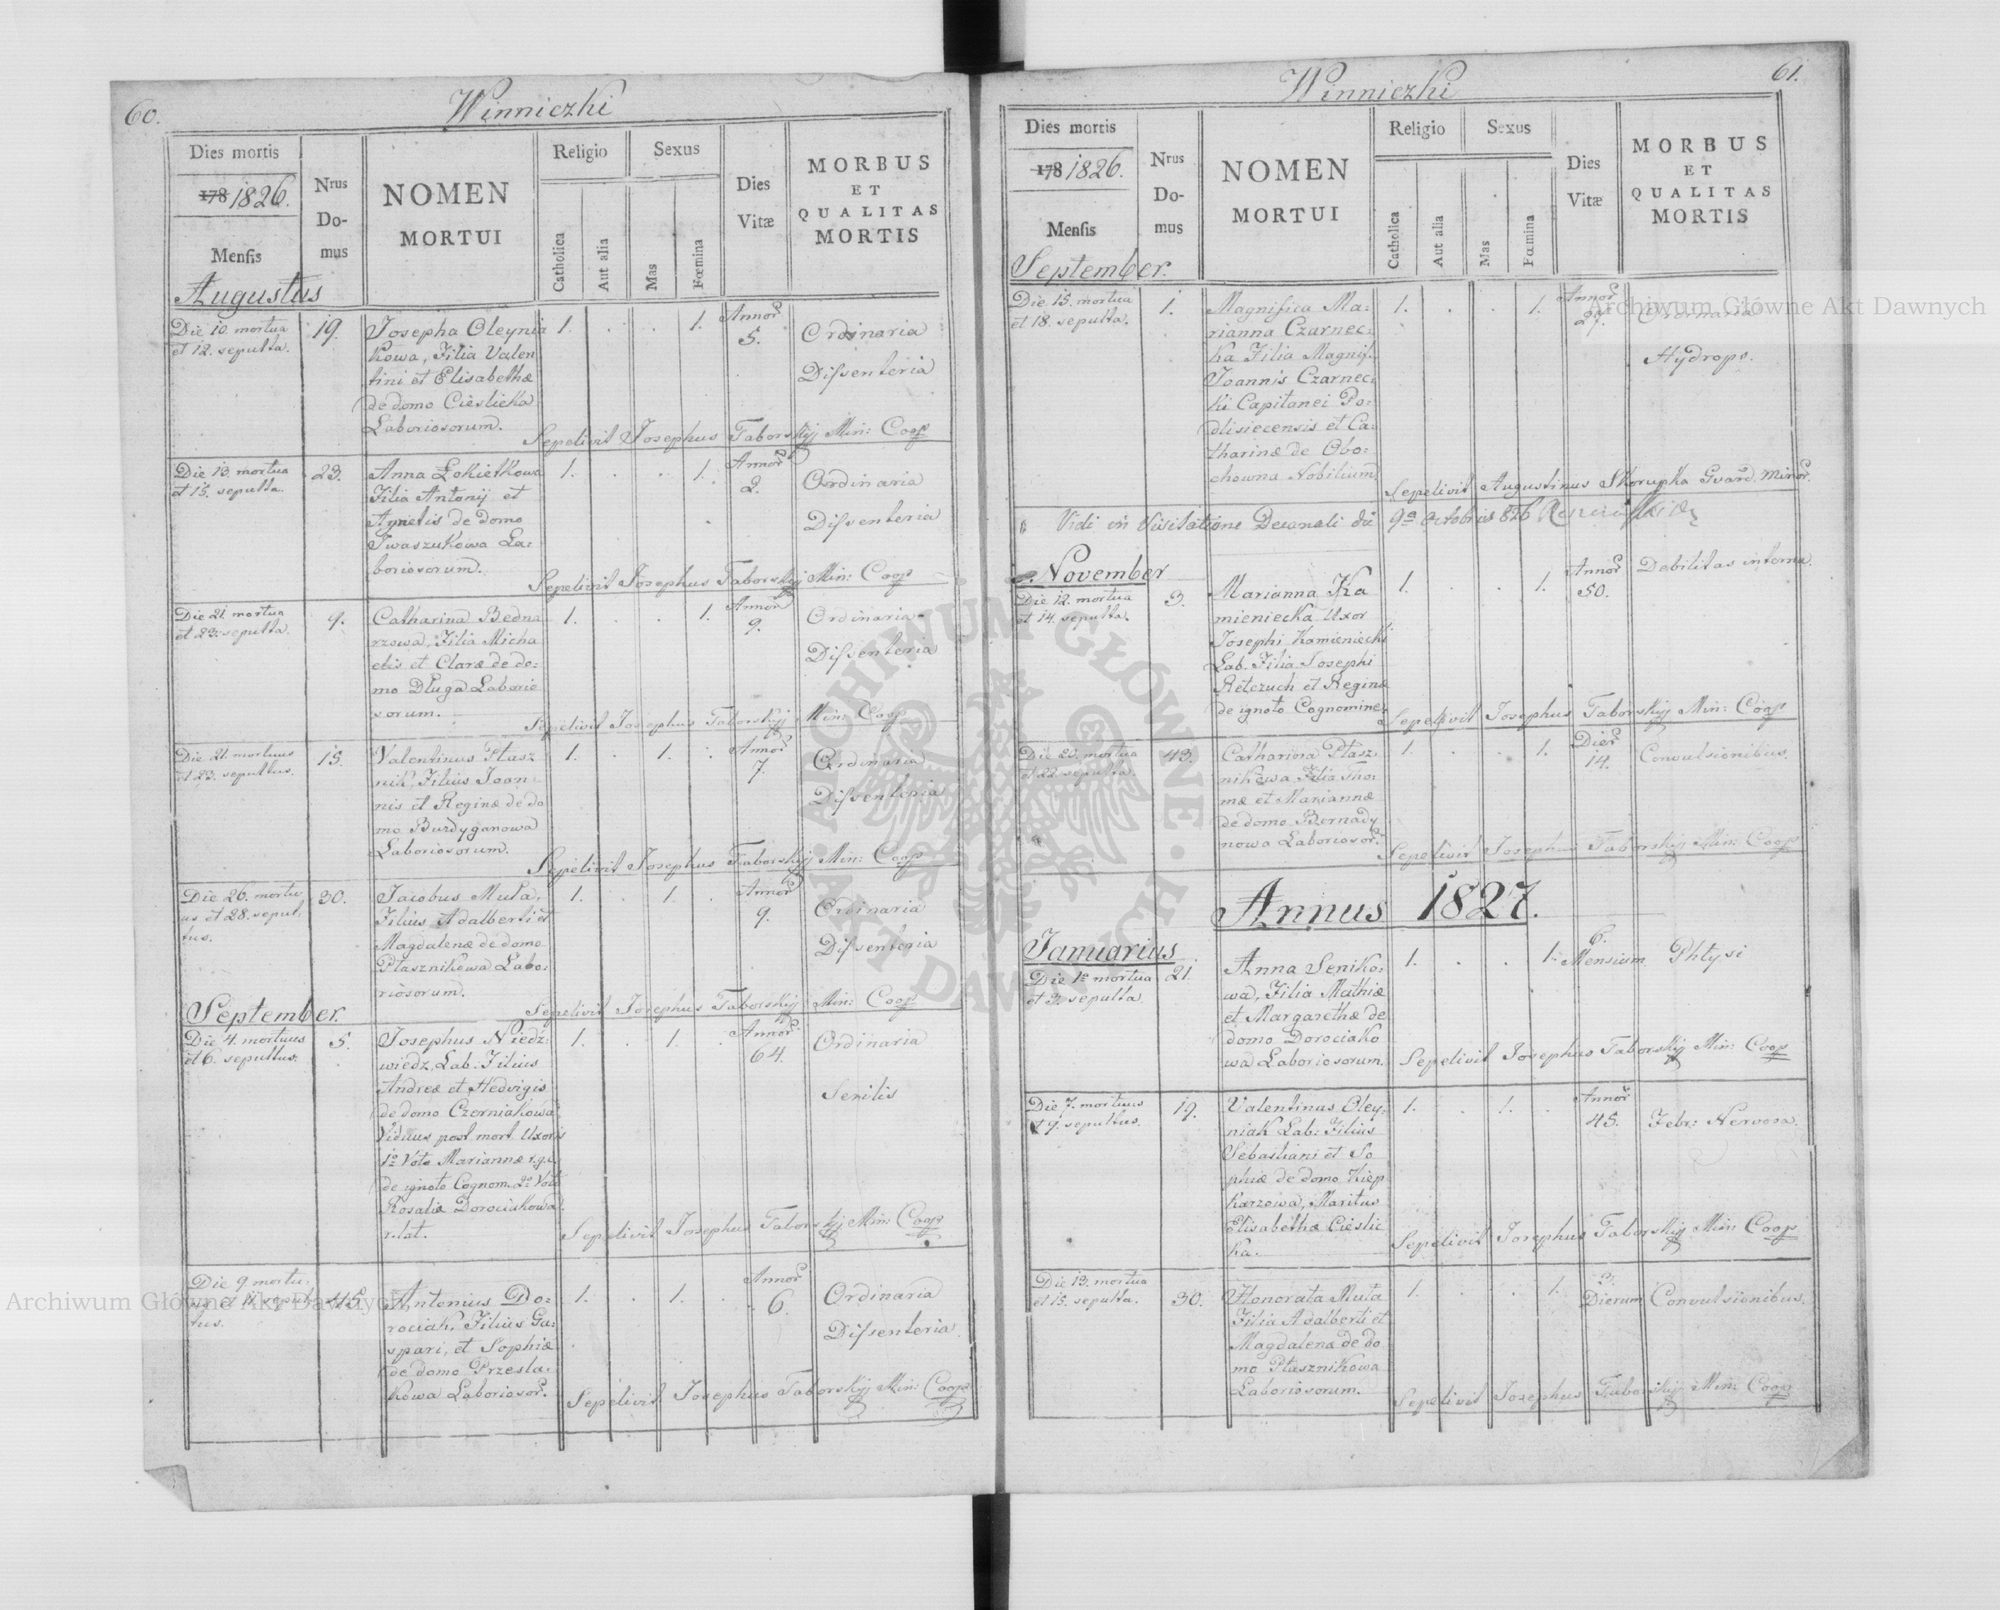 60.
Winniczki
Dies mortis
178 1826.
Mensis
Nrus
Do-
mus
NOMEN
MORTUI
Religio
Catholica
Aut alia
Sexus
Mas
Fœmina
Dies
Vitæ
MORBUS
ET
QUALITAS
MORTIS
Augustus
Die 10. mortua
et 12. sepulta.
19.
Josepha Oleynia
kowa, Filia Valen
tini et Elisabethæ
de domo Cieslicka
Laboriosorum.
1. . . 1.
Annor
5.
Ordinaria
Dissenteria
Sepelivit Josephus Taborskij Min: Coop
Die 13. mortua
et 15. sepulta.
23.
Anna Łokietkowa
Filia Antonij et
Agnetis de domo
Iwaszukowa La-
boriosorum.
1. . . 1.
Annor
2.
Ordinaria
Dissenteria
Sepelivit Josephus Taborskij Min: Coop
Die 21. mortua
et 23. sepulta.
9.
Catharina Bedna
rzowa, Filia Micha
elis et Claræ de do-
mo Długa Laborio
sorum.
1. . . 1.
Annor
9.
Ordinaria
Dissenteria
Sepelivit Josephus Taborskij Min: Coop
Die 21. mortuus
et 23. sepultus.
15.
Valentinus Ptasz
nik, Filius Joan
nis et Reginæ de do
mo Burdyganowa
Laboriosorum.
1. . 1. .
Annor
7.
Ordinaria
Dissenteria
Sepelivit Josephus Taborskij Min: Coop
Die 26. mortu
us et 28. sepul.
tus.
30.
Jacobus Muła,
Filius Adalberti et
Magdalenæ de domo
Ptasznikowa Labo-
riosorum.
1. . 1. .
Annor
9.
Ordinaria
Dissenteria
Sepelivit Josephus Taborskij Min: Coop
September.
Die 4. mortuus
et 6. sepultus.
5.
Josephus Niedz-
wiedz, Lab. Filius
Andreæ et Hedvigis
de domo Czerniakowa
Viduus post mort. Uxoris
1o Voto Mariannæ
de ignoto Cognom. 2o Voto
Rosaliæ Dorociakowa
relat.
1. . 1. .
Annor.
64.
Ordinaria
Senilis
Sepelivit Josephus Taborskij Min: Coop
Die 9. mortu-
us et 11. sepul-
tus.
45.
Antonius Do-
rociak, Filius Ga-
spari, et Sophiæ
de domo Przesla-
kowa Laboriosor.
1. . 1. .
Annor
6.
Ordinaria
Dissenteria.
Sepelivit Josephus Taborskij Min: Coop
61.
Winniczki
Dies mortis
178 1826.
Mensis
Nrus
Do-
mus
NOMEN
MORTUI
Religio
Catholica
Aut alia
Sexus
Mas
Fœmina
Dies
Vitæ
MORBUS
ET
QUALITAS
MORTIS
September.
Die 15. mortua
et 18. sepulta.
1.
Magnifica Ma-
rianna Czarnec-
ka Filia Magnif.
Joannis Czarnec-
ki Capitanei Po-
dlisiecensis et Ca-
tharinæ de Obo-
chowna Nobilium
1. . . 1.
Annor
29.
Ordinaria
Hydrops.
Sepelivit Augustinus Skorupka Gvard. Minor.
Vidi in Visitatione Decanali die 9a Octobris 826
November
Die 12. mortua
et 14. sepulta.
3.
Marianna Ka
mieniecka Uxor
Josephi Kamieniecki
Lab. Filia Josephi
Retezuch et Reginæ
de ignoto Cognomine
1. . . 1.
Annor
50.
Debilitas interna.
Sepelivit Josephus Taborskij Min: Coop
Die 20. mortua
et 22. sepulta.
43.
Catharina Ptasz-
nikowa Filia Tho-
mæ et Mariannæ
de domo Bernady
nowa Laboriosor.
1. . . 1.
Dier
14.
Convulsionibus.
Sepelivit Josephus Taborskij Min: Coop
Annus 1827.
Januarius
Die 1a mortua
et 3. sepulta.
21.
Anna Seniko-
wa, Filia Mathiæ
et Margarethæ de
domo Dorociako
wa Laboriosorum.
1. . . 1.
6.
Mensium
Phtysi
Sepelivit Josephus Taborskij Min: Coop
Die 7. mortuus
et 9. sepultus.
19.
Valentinus Oley-
niak Lab: Filius
Sebastiani et So
phiæ de domo Kiep
karzowa, Maritus
Elisabethæ Cieslic
ka.
1. . 1. .
Annor
45.
Febr: Nervosa.
Sepelivit Josephus Taborskij Min: Coop
Die 13. mortua
et 15. sepulta.
30.
Honorata Muła
Filia Adalberti et
Magdalenæ de do
mo Ptasznikowa
Laboriosorum.
1. . . 1.
3.
Dierum
Convulsionibus.
Sepelivit Josephus Taborskij Min: Coop
Archiwum Główne Akt Dawnych
Archiwum Główne Akt Dawnych
ARCHIWUM GŁÓWNE · AKT DAWNYCH ·